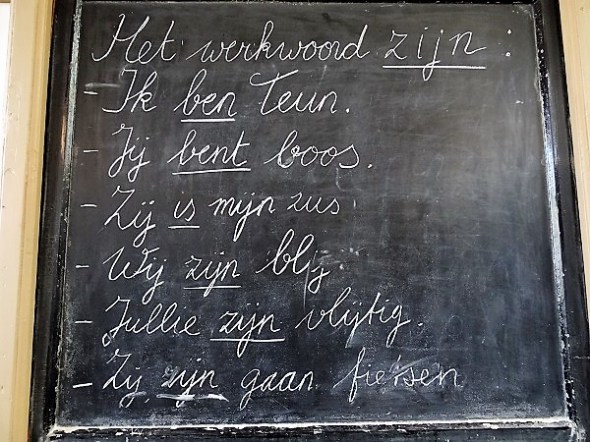 Het werkwoord zijn :
- Ik ben Teun.
- Jij bent boos.
- Zij is mijn zus.
- Wij zijn blij.
- Jullie zijn vlijtig.
- Zij zijn gaan fietsen